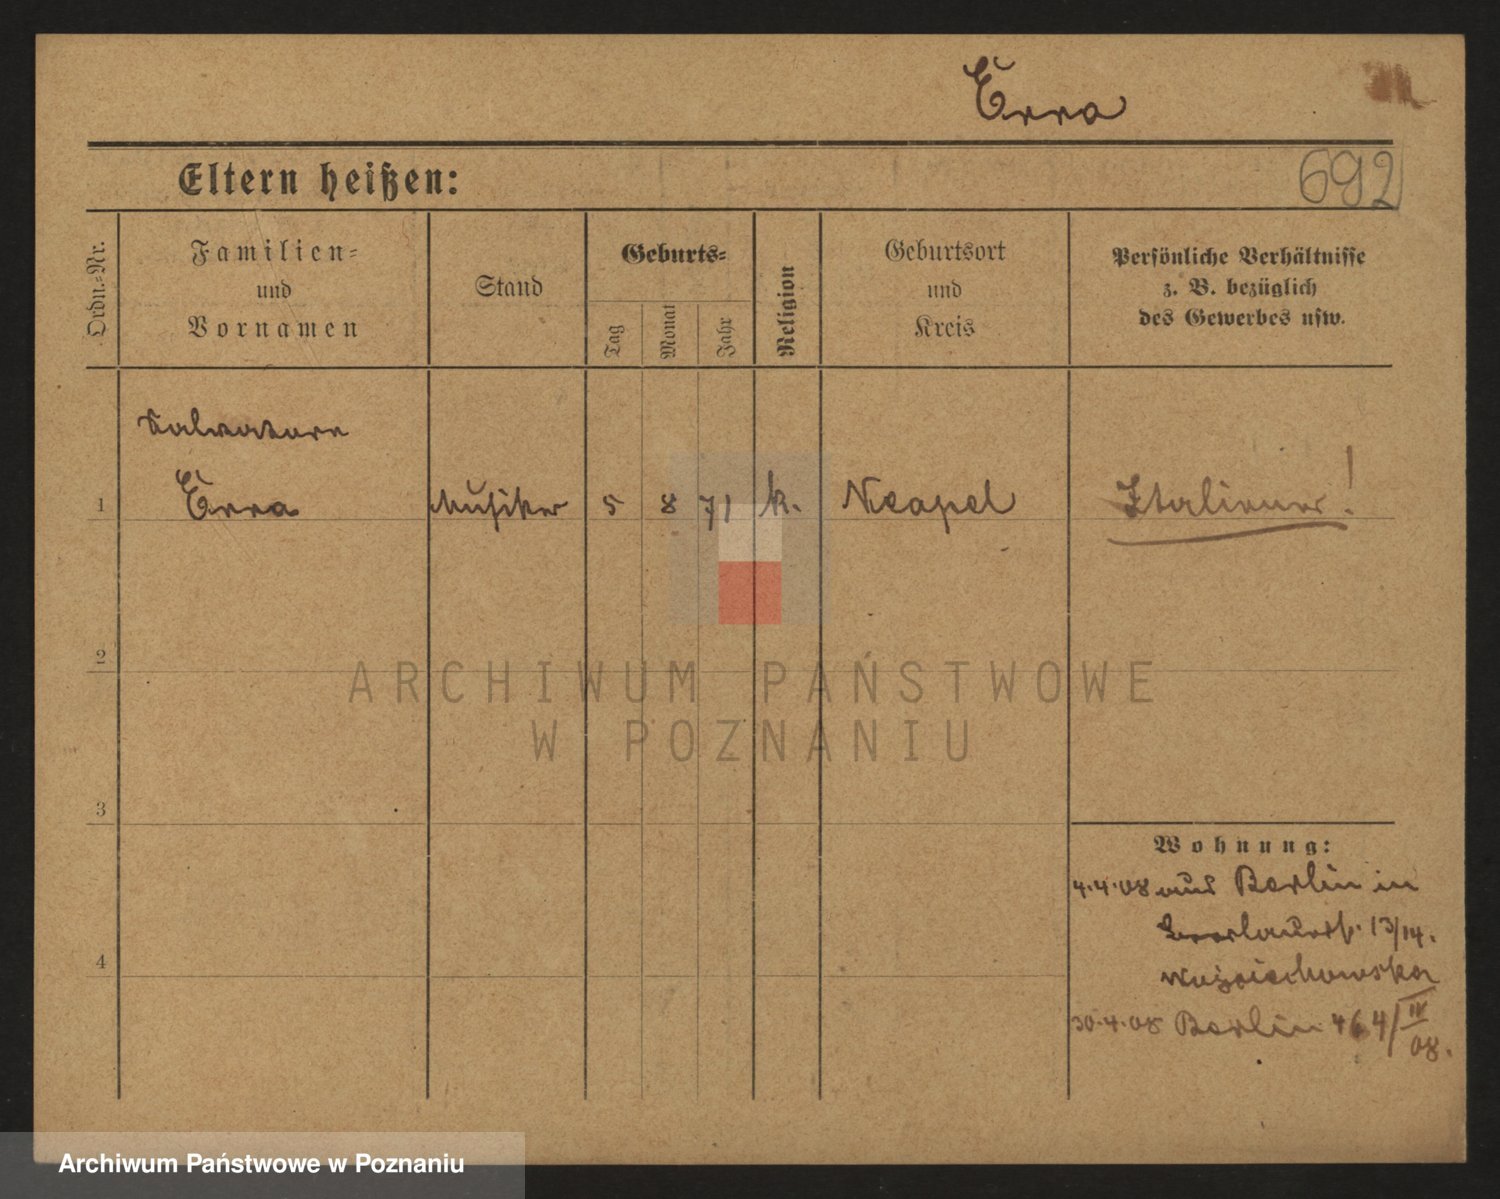 Erra
Eltern heißen:
692
Ordn.-Nr.
Familien-
und
Vornamen
Stand
Geburts-
Tag
Monat
Jahr
Religion
Geburtsort
und
Kreis
Persönliche Verhältnisse
z. B. bezüglich
des Gewerbes usw.
Salvatore
1 Erra Musiker 5 8 71 k. Neapel Italiener!
2
ARCHIWUM PAŃSTWOWE
W POZNANIU
3
Wohnung:
4.4.08 aus Berlin in
13/14.
4
Wojciechowska
30.4.08 Berlin 464/IV
08.
Archiwum Państwowe w Poznaniu